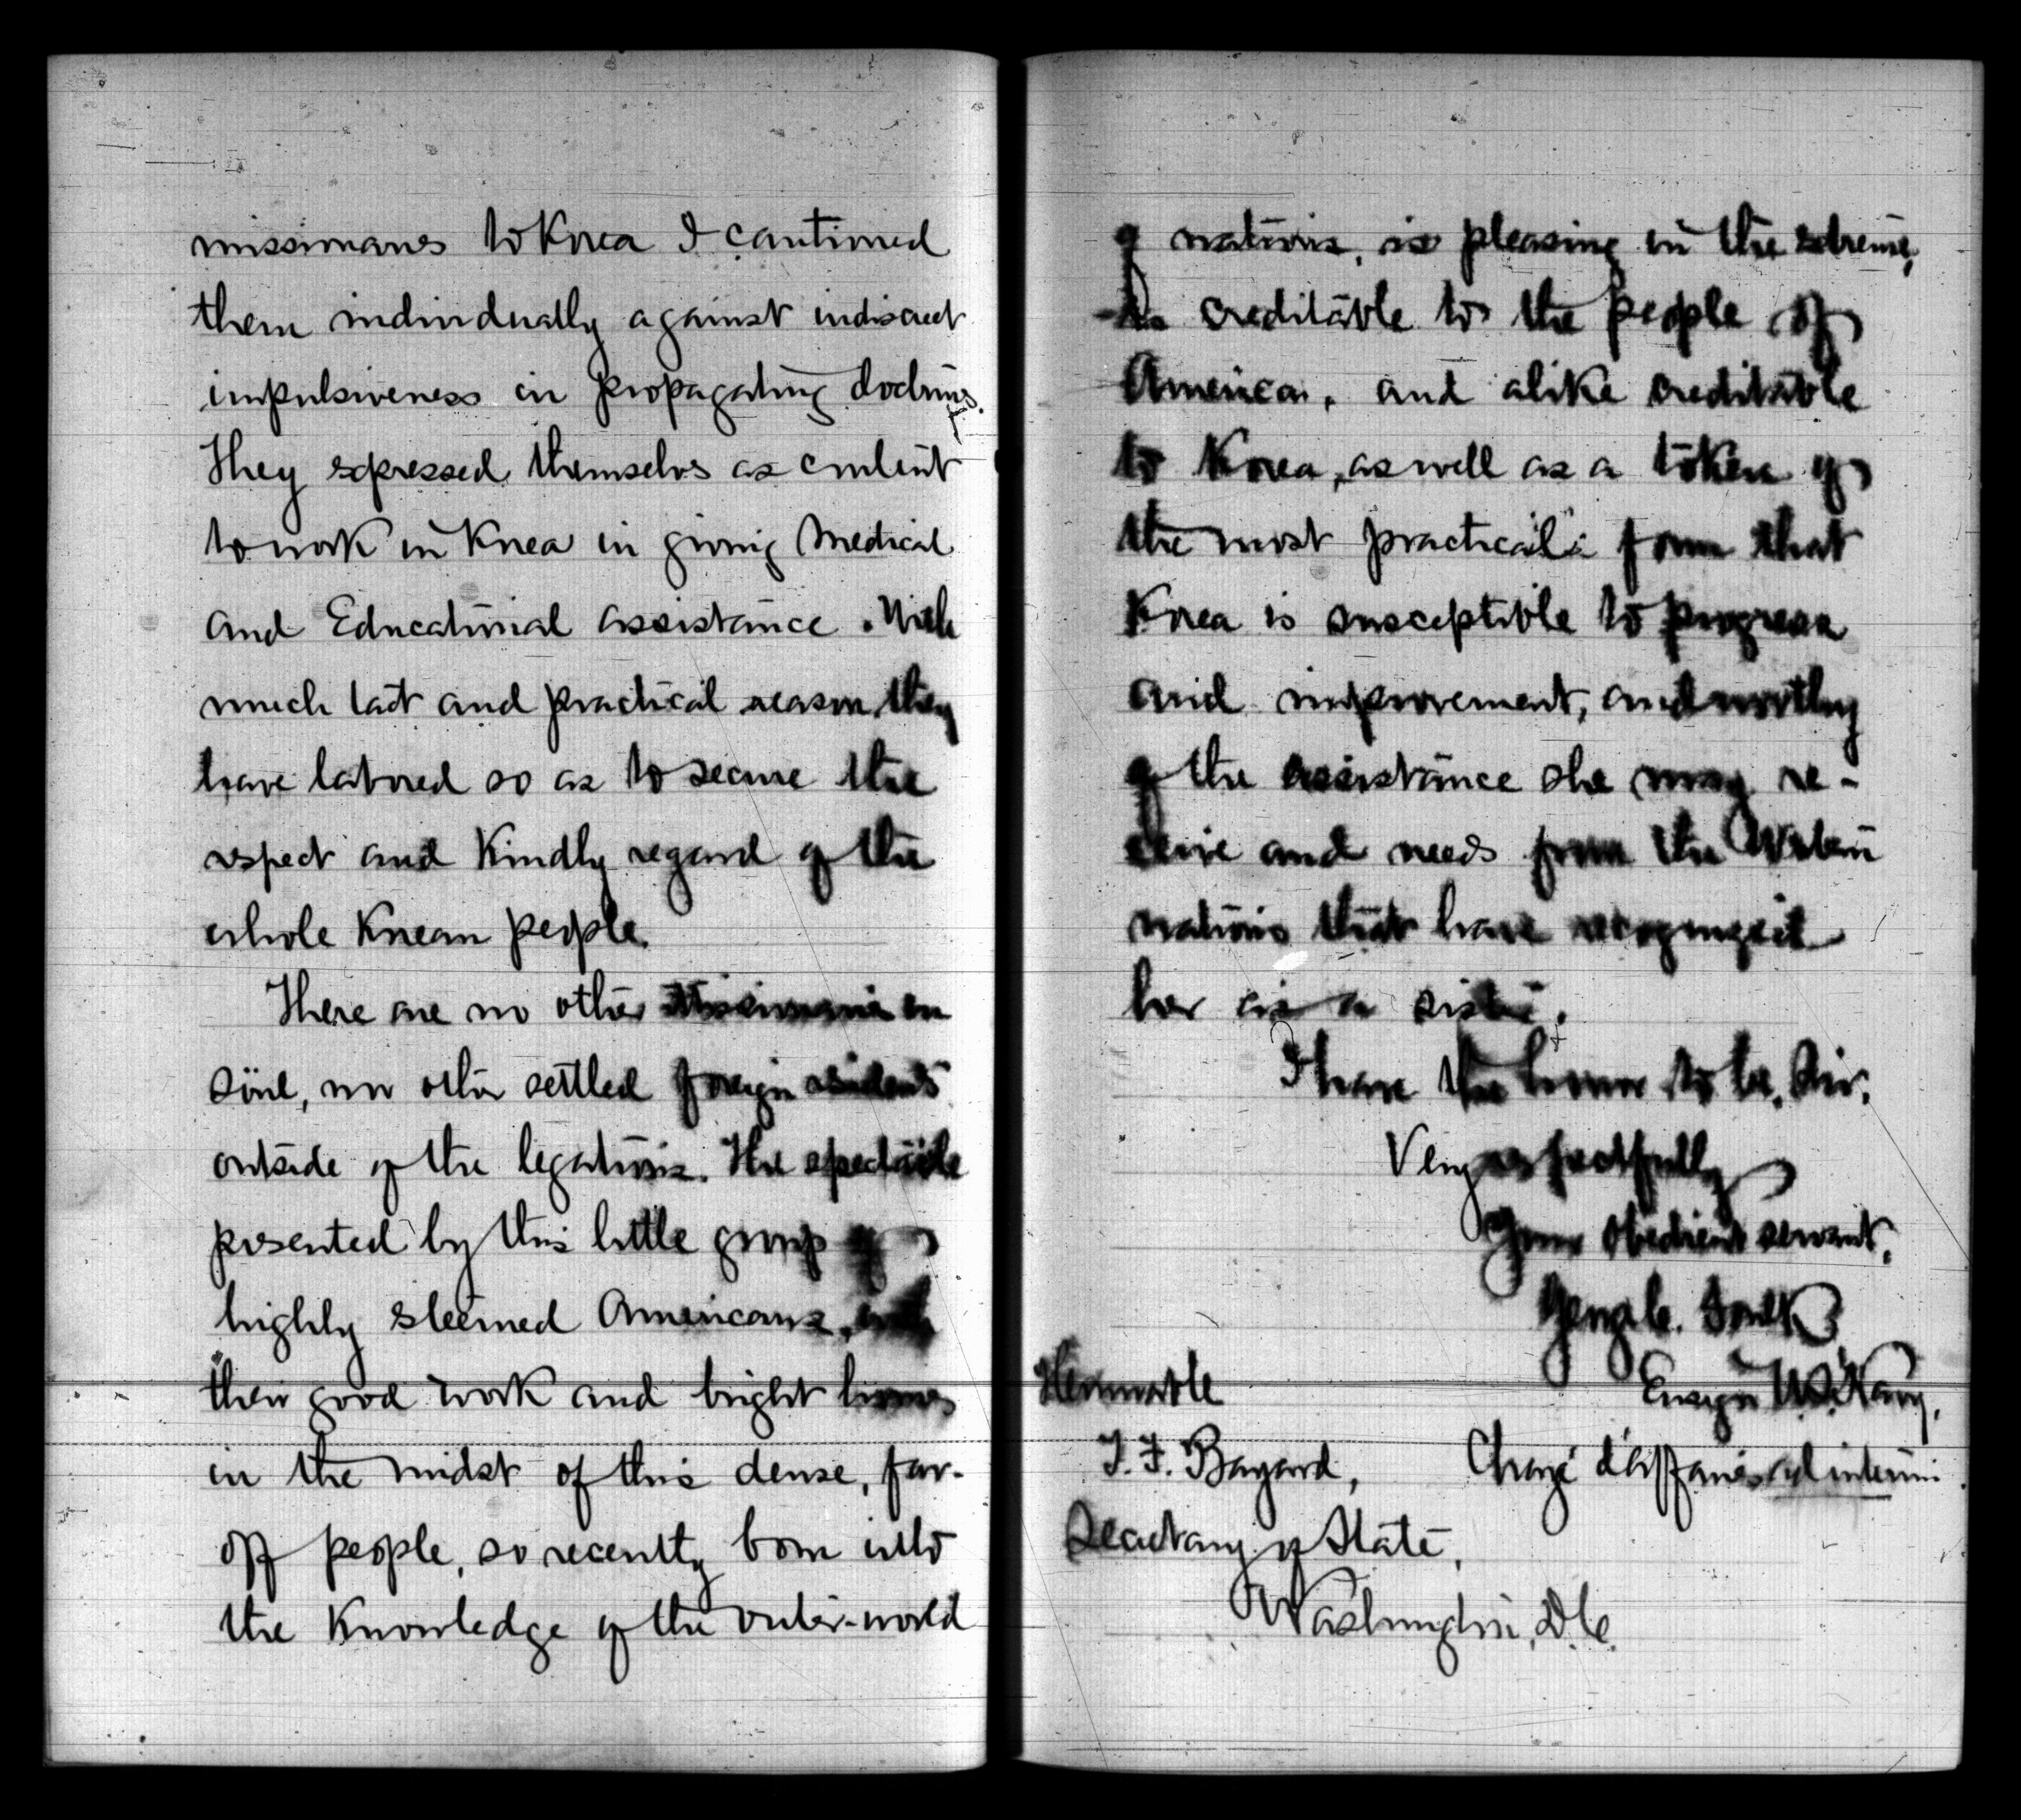 missionaries to Korea I cautioned
them individually against indiscreet
impulsiveness in propagating doctrines.
They expressed themselves as content
to work in Korea in giving Medical
and Educational assistance. With
much tact and practical reason they
have labored so as to secure the
respect and Kindly regard of the
whole Korean people.
There are no other Missionaries in
Söul, no other settled foreign residents
outside of the legations. The spectacle
presented by this little group of
highly esteemed Americans, with
their good work and bright homes
in the midst of this dense, far-
off people, so recently born into
the Knowledge of the outer-world
of nations, is pleasing in the extreme,
is creditable to the people of
America, and alike creditable
to Korea, as well as a token of
the most practical form that
Korea is susceptible to progress
and improvement, and worthy
of the assistance she may re-
ceive and needs from the Western
nations that have recognized
her as a sister.
I have the honor to be, Sir,
Very respectfully
Your obedient servant,
George C. Foulk
Ensign U.S. Navy,
Chargé d'affaires ad interim
Honorable
T. F. Bayard,
Secretary of State,
Washington, D.C.